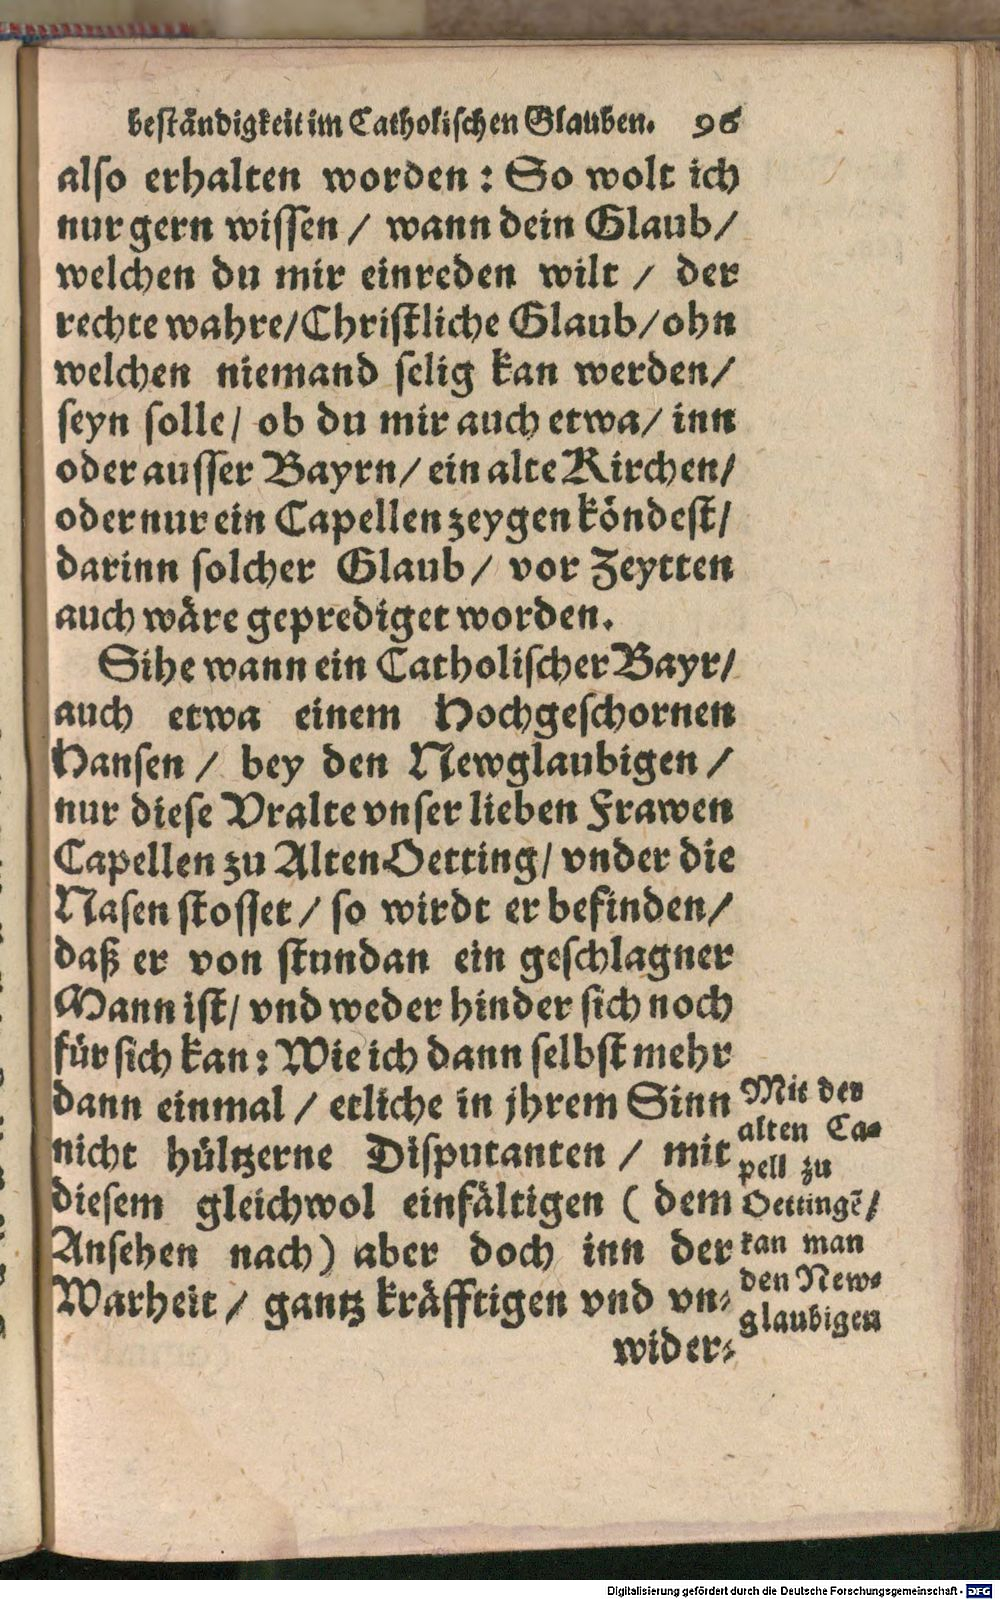 beständigkeit im Catholischen Glauben. 96
also erhalten worden: So wolt ich
nur gern wissen / wann dein Glaub /
welchen du mir einreden wilt / der
rechte wahre/Christliche Glaub/ohn
welchen niemand selig kan werden/
seyn solle/ ob du mir auch etwa/ inn
oder ausser Bayrn/ ein alte Kirchen/
oder nur ein Capellen zeygen köndest/
darinn solcher Glaub/ vor Zeytten
auch wäre geprediget worden.
Sihe wann ein Catholischer Bayr/
auch etwa einem Hochgeschornen
Hansen / bey den Newglaubigen /
nur diese Vralte vnser lieben Frawen
Capellen zu Alten Oetting/ vnder die
Nasen stosset / so wirdt er befinden/
daß er von stundan ein geschlagner
Mann ist/ vnd weder hinder sich noch
für sich kan: Wie ich dann selbst mehr
dann einmal / etliche in jhrem Sinn
nicht hültzerne Disputanten / mit
diesem gleichwol einfältigen ( dem
Ansehen nach) aber doch inn der
Warheit / gantz kräfftigen vnd vn-
wider-
Mit der
alten Ca-
pell zu
Oettingẽ/
kan man
den New-
glaubigen
Digitalisierung gefördert durch die Deutsche Forschungsgemeinschaft - DFG